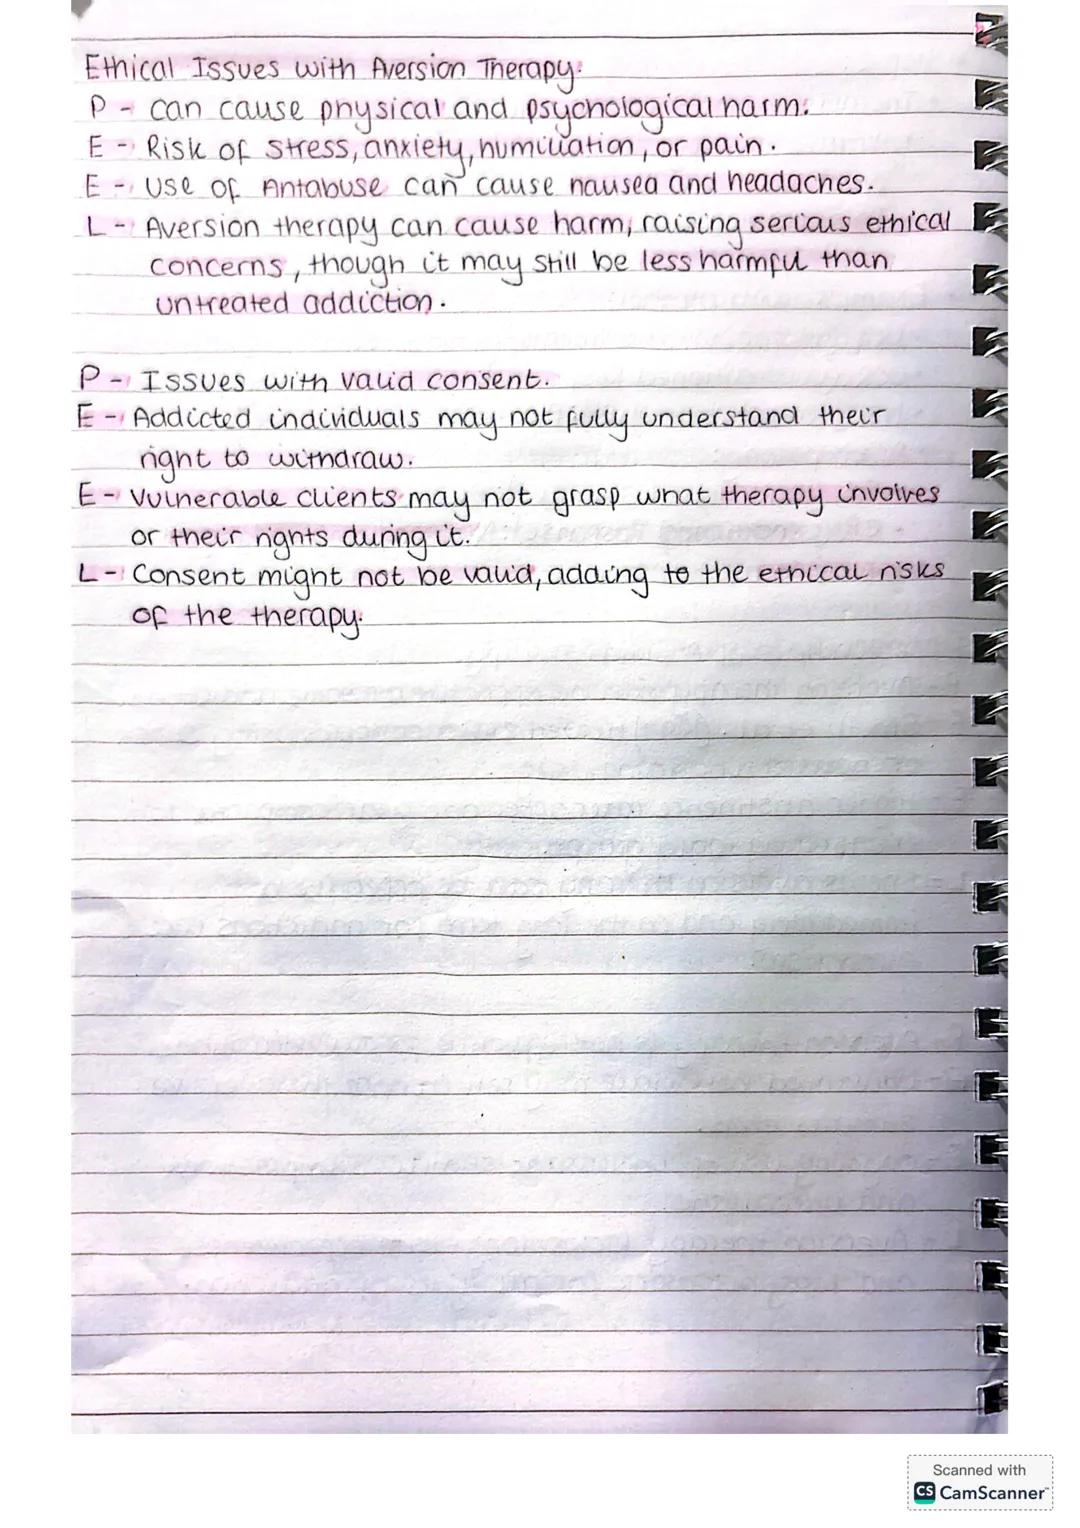 Ethical Issues with Aversion Therapy:
P - can cause physical and psychological harm.
E - Risk of stress, anxiety, humiliation, or pain.
E - Use of Antabuse can cause nausea and headaches.
L - Aversion therapy can cause harm, raising serious ethical
concerns, though it may still be less harmful than
untreated addiction.
P - Issues with valid consent.
E - Addicted individuals may not fully understand their
right to withdraw.
E - Vulnerable clients may not grasp what therapy involves
or their rights during it.
L - Consent might not be valid, adding to the ethical risks
of the therapy.
Scanned with
CS CamScanner